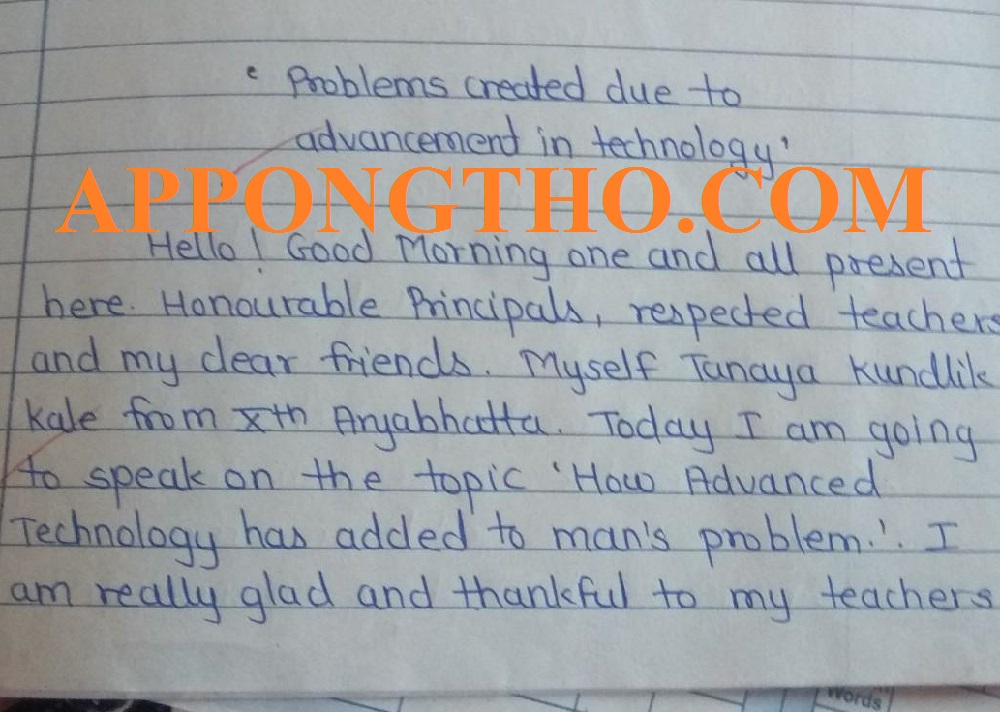 ‘ Problems created due to
advancement in technology’
APPONGTHO.COM
Hello! Good Morning one and all present
here. Honourable Principals, respected teachers
and my dear friends. Myself Tanaya Kundlik
Kale from Xth Aryabhatta. Today I am going
to speak on the topic ‘How Advanced
Technology has added to man's problem.’. I
am really glad and thankful to my teachers
Words